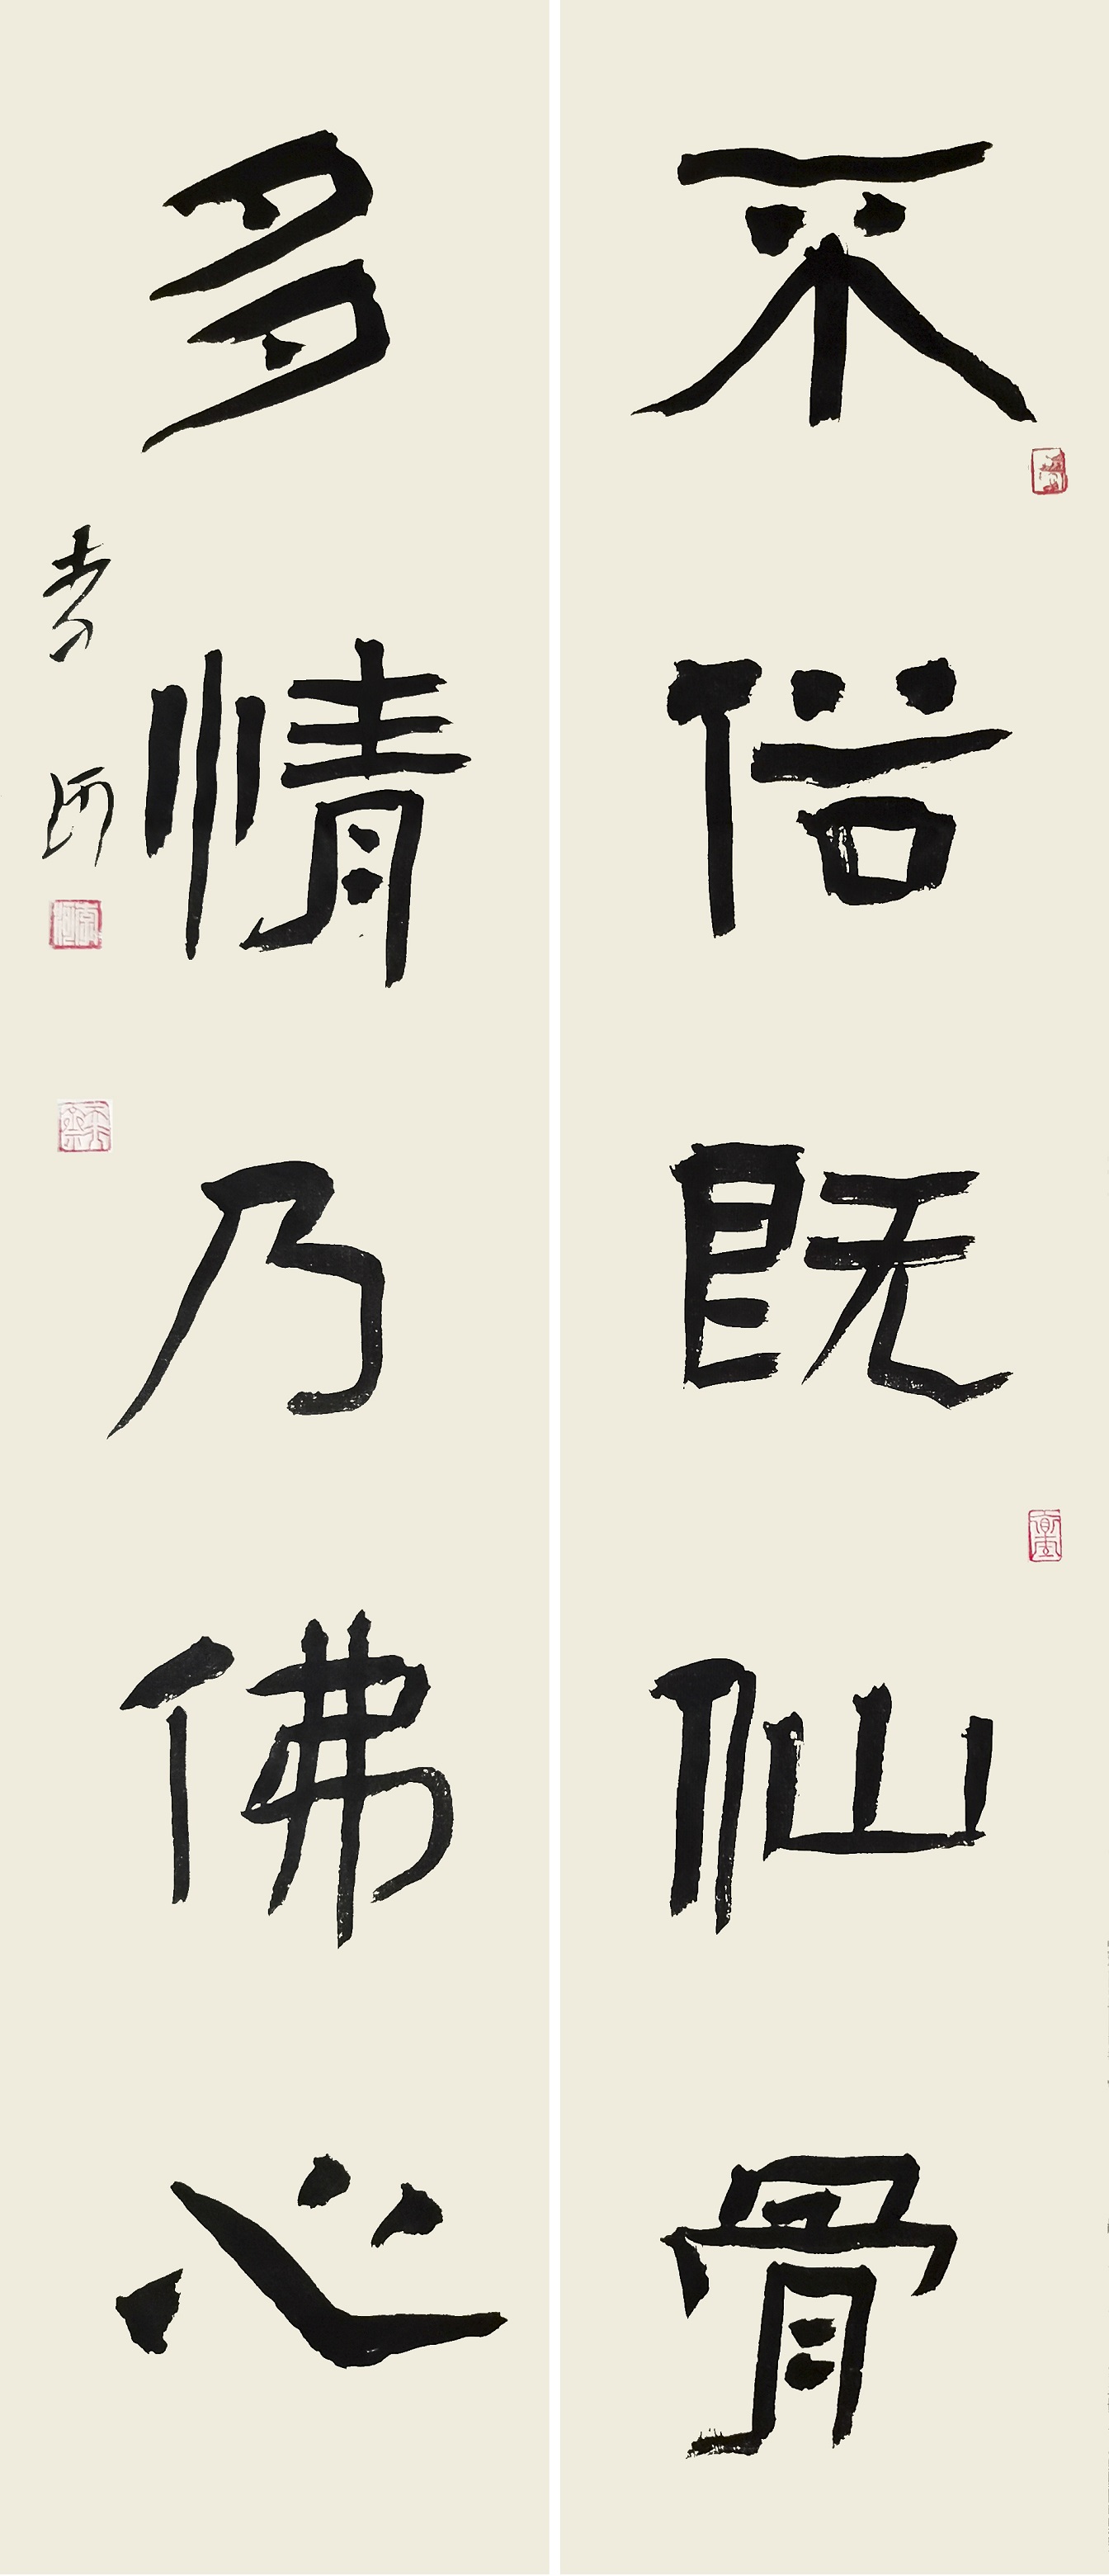 不俗既仙骨
多情乃佛心